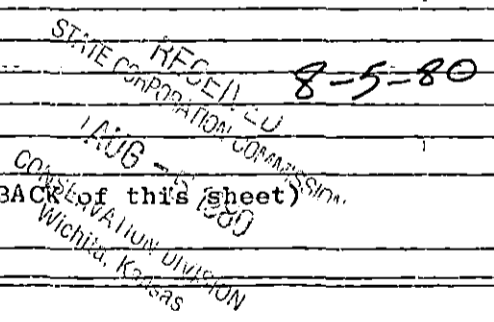 RECEIVED
STATE CORPORATION COMMISSION
8-5-80
AUG - 5 1980
BACK of this sheet)
CONSERVATION DIVISION
Wichita, Kansas